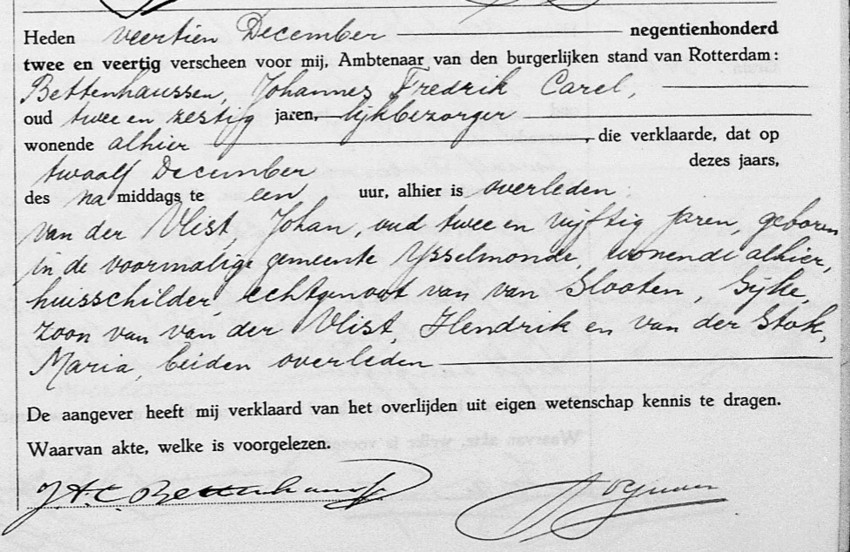 Heden veertien December negentienhonderd
twee en veertig verscheen voor mij, Ambtenaar van den burgerlijken stand van Rotterdam:
Bettenhaussen, Johannes Fredrik Carel,
oud twee en zestig jaren, lijkbezorger
wonende alhier, die verklaarde, dat op
twaalf December dezes jaars,
des namiddags te een uur, alhier is overleden:
van der Vlist, Johan, oud twee en vijftig jaren, geboren
in de voormalige gemeente IJsselmonde, wonende alhier,
huisschilder, echtgenoot van van Slooten, Sijke,
zoon van van der Vlist, Hendrik en van der Stok,
Maria, beiden overleden
De aangever heeft mij verklaard van het overlijden uit eigen wetenschap kennis te dragen.
Waarvan akte, welke is voorgelezen.